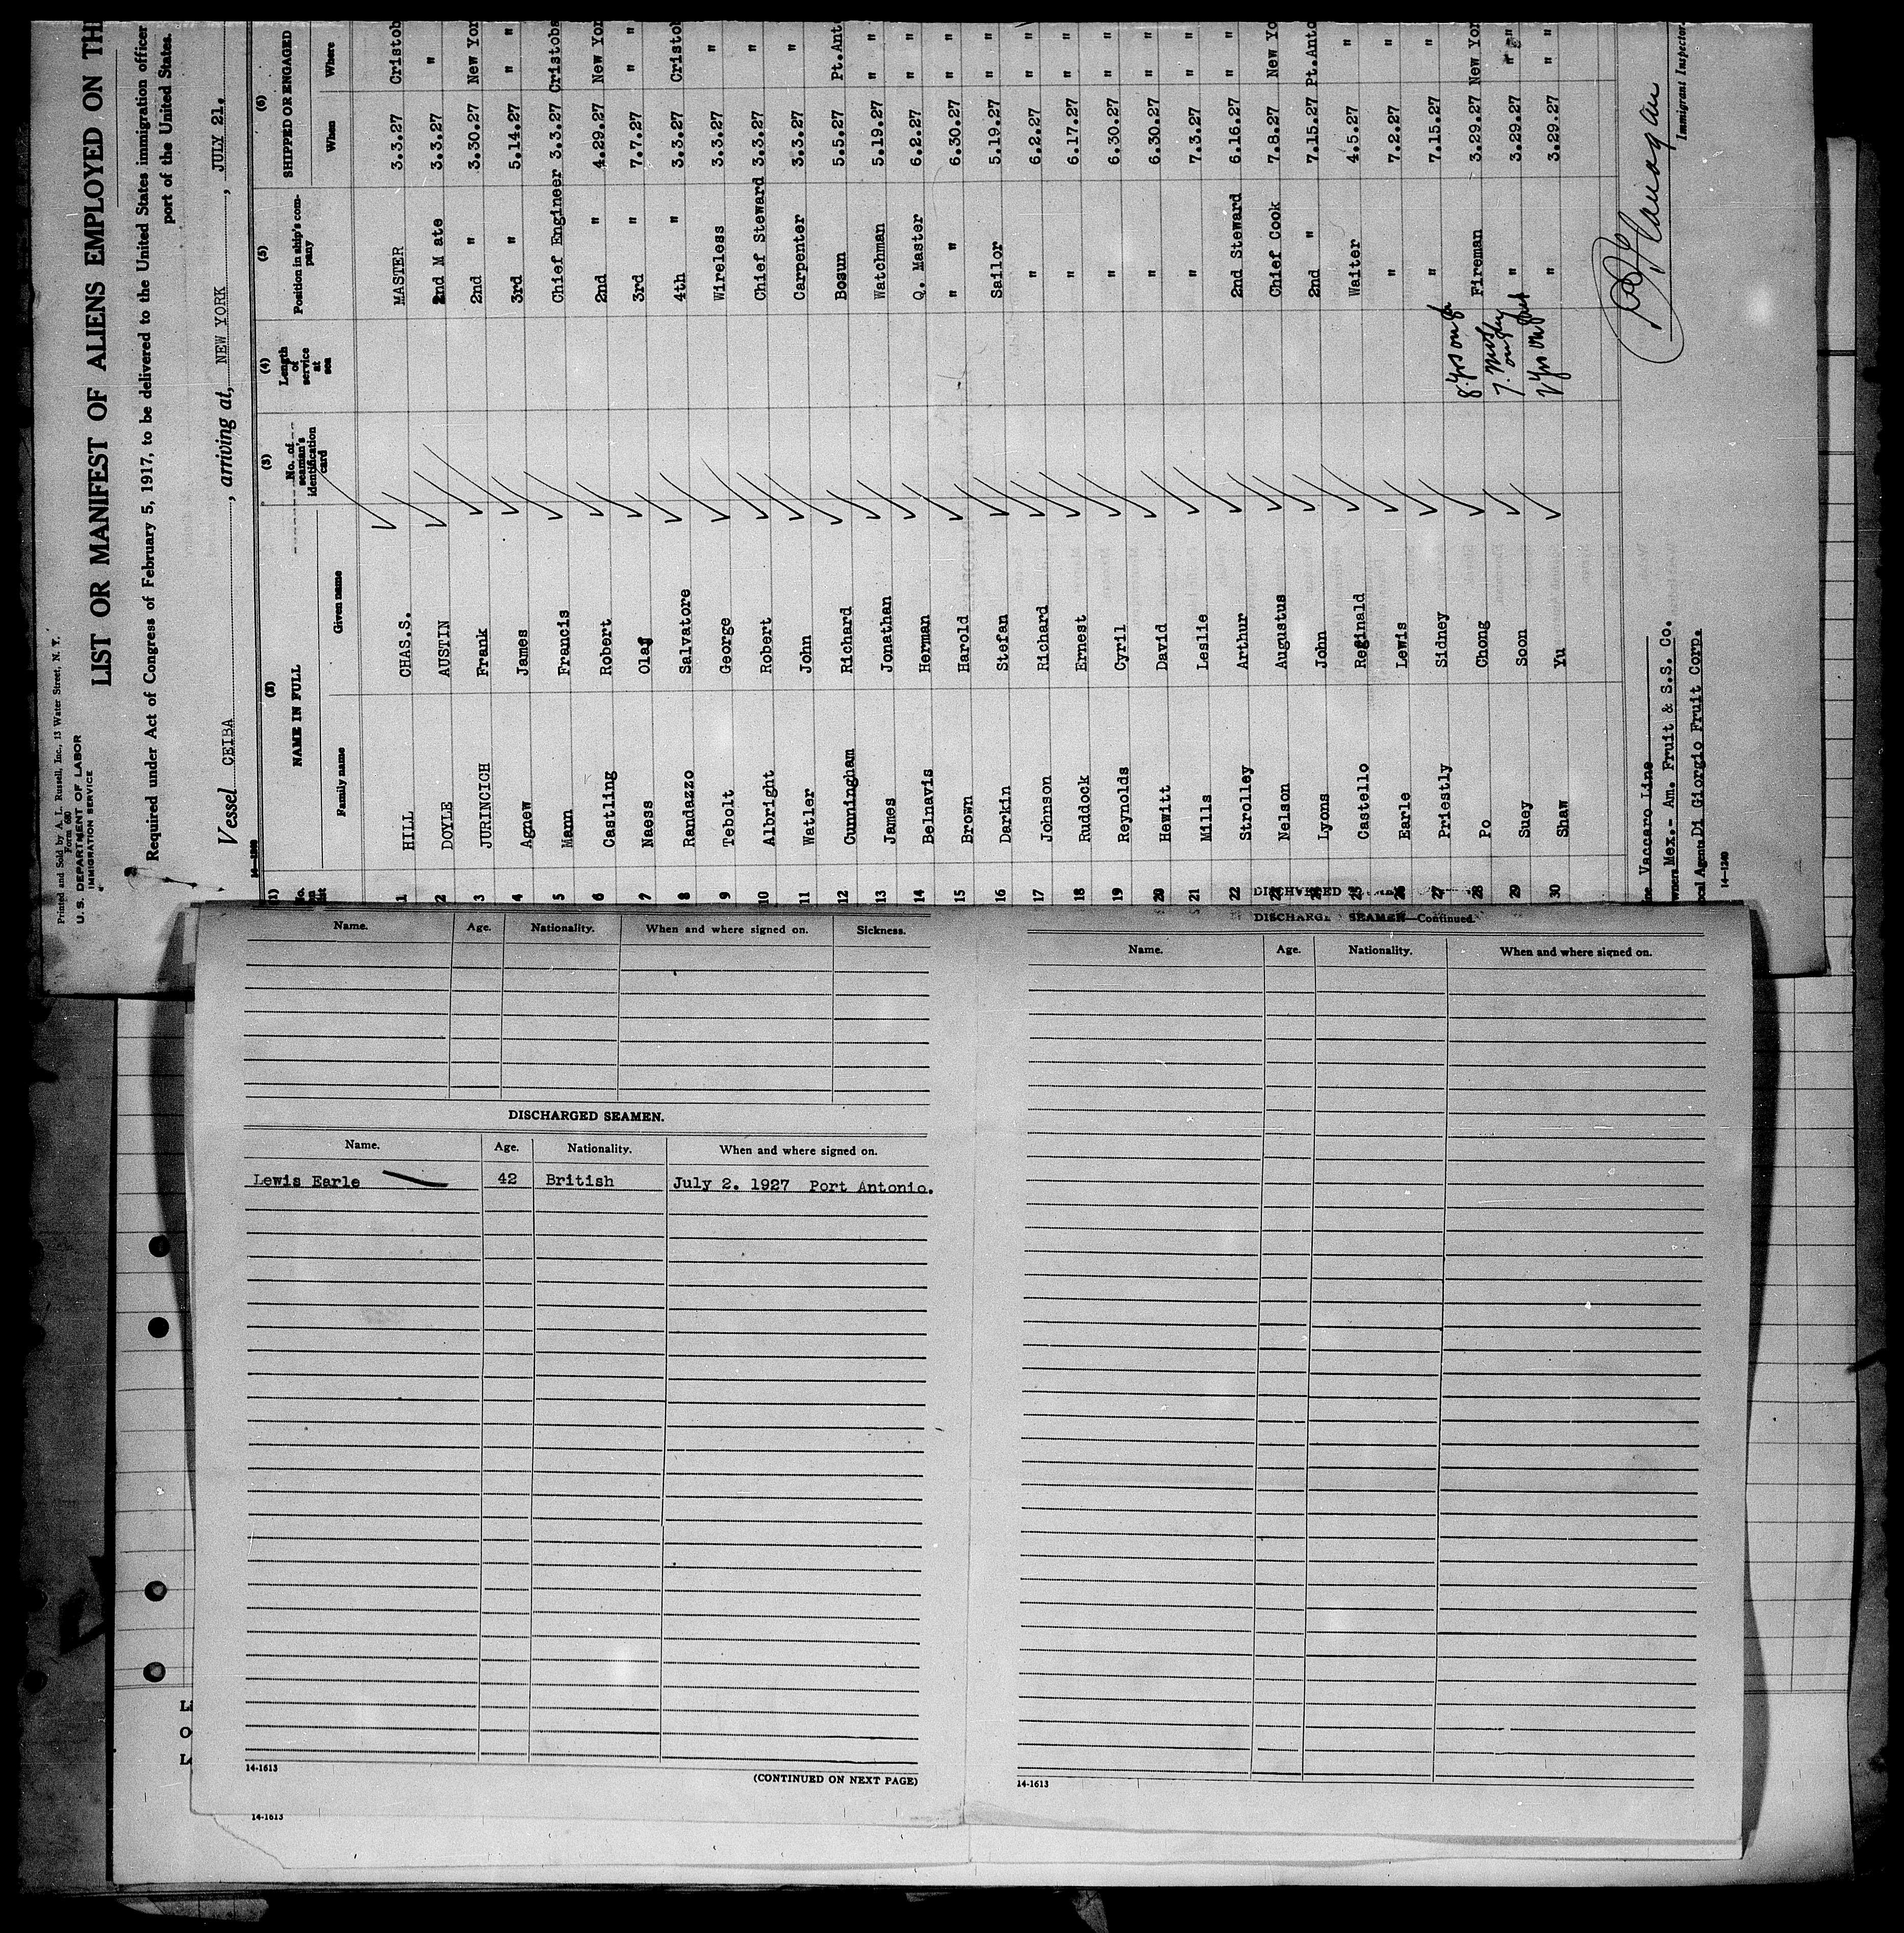 Printed and Sold by A. L. Russell, Inc., 13 Water Street, N. Y.
Form 680
U. S. DEPARTMENT OF LABOR
IMMIGRATION SERVICE
LIST OR MANIFEST OF ALIENS EMPLOYED ON TH
Required under Act of Congress of February 5, 1917, to be delivered to the United States immigration officer
port of the United States.
Vessel CEIBA, arriving at, NEW YORK, JULY 21.
14-1240
(1) (2) (3) (4) (5) (6)
NAME IN FULL No. of seaman's identification card Length of service at sea Position in ship's company SHIPPED OR ENGAGED
Family name Given name When Where
1 HILL CHAS.S. MASTER 3.3.27 Cristob
2 DOYLE AUSTIN 2nd M ate 3.3.27 "
3 JURINCICH Frank 2nd " 3.30.27 New Yor
4 Agnew James 3rd " 5.14.27 " "
5 Mann Francis Chief Engineer 3.3.27 Cristoba
6 Castling Robert 2nd " 4.29.27 New Yor
7 Naess Olaf 3rd " 7.7.27 " "
8 Randazzo Salvatore 4th " 3.3.27 Cristob
9 Tebolt George Wireless 3.3.27 "
10 Albright Robert Chief Steward 3.3.27 "
11 Watler John Carpenter 3.3.27 "
12 Cunningham Richard Bosun 5.5.27 Pt.Ant
13 James Jonathan Watchman 5.19.27 " "
14 Belnavis Herman Q. Master 6.2.27 " "
15 Brown Harold " 6.30.27 " "
16 Darkin Stefan Sailor 5.19.27 " "
17 Johnson Richard " 6.2.27 " "
18 Ruddock Ernest " 6.17.27 " "
19 Reynolds Cyril " 6.30.27 " "
20 Hewitt David " 6.30.27 " "
21 Mills Leslie " 7.3.27 " "
22 Strolley Arthur 2nd Steward 6.16.27 " "
23 Nelson Augustus Chief Cook 7.8.27 New Yo
24 Lyons John 2nd " 7.15.27 Pt.Anto
25 Castello Reginald Waiter 4.5.27 "
26 Earle Lewis " 7.2.27 " "
27 Priestly Sidney " 7.15.27 " "
28 Po Chong 8 yrs Fireman 3.29.27 New Yor
29 Suey Soon " 3.29.27 " "
30 Shaw Yu yrs " 3.29.27 " "
Immigrant Inspector.
ne Vaccaro Line
wners Mex.- Am. Fruit & S.S. Co.
ocal Agents Di Giorgio Fruit Corp.
14-1240
Name. Age. Nationality. When and where signed on. Sickness.
DISCHARGED SEAMEN.
Name. Age. Nationality. When and where signed on.
Lewis Earle 42 British July 2. 1927 Port Antonio.
14-1613
(CONTINUED ON NEXT PAGE)
14-1613
DISCHARGE SEAMEN—Continued.
Name. Age. Nationality. When and where signed on.
14-1613